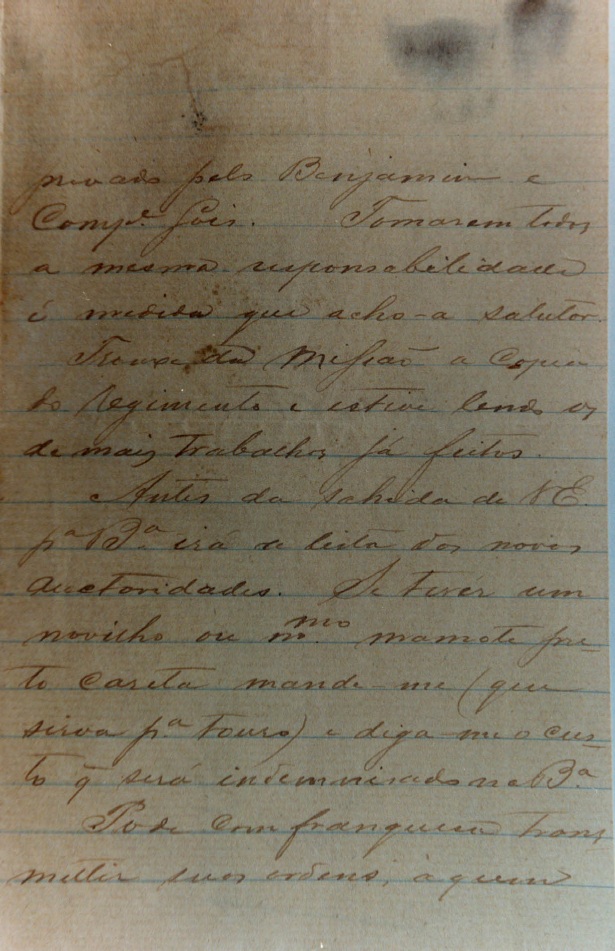 provado pelo Benjamim e
Comp.ª Góis. Tomarem todos
a mesma responsabilidade
é medida que acho-a salutar.
Trouxe da Missão a Copia
do regimento e estive lendo os
de mais trabalhos já feitos.
Antes da sahida de V E.
p.ª B.ª irá a lista dos novos
auctoridades. Se tiver um
novilho ou m.mo mamote pre-
to careta mande-me (que
sirva p.ª touro) e diga-me o cus-
to q̃ será indemnisado na B.ª
Pode com franquesa trans
mettir suas ordens, a quem